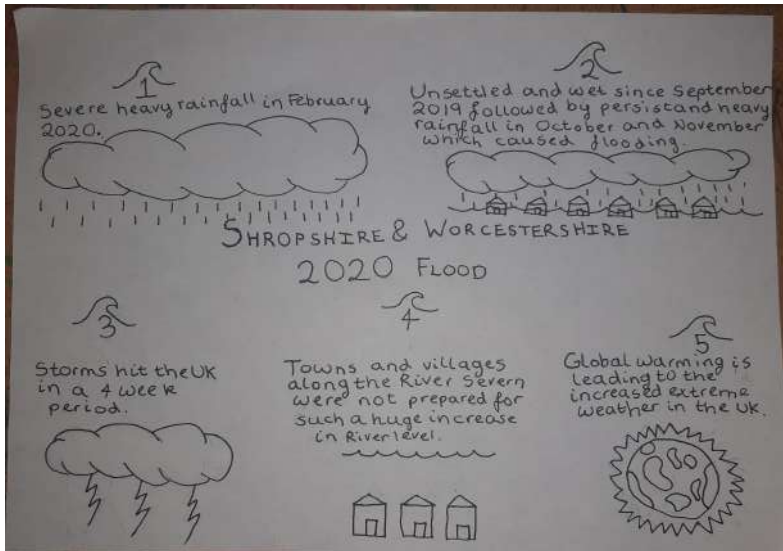 1
Severe heavy rainfall in February
2020.
2
Unsettled and wet since September
2019 followed by persistand heavy
rainfall in October and November
which caused flooding.
SHROPSHIRE & WORCESTERSHIRE
2020 FLOOD
3
Storms hit the UK
in a 4 week
period.
4
Towns and villages
along the River Severn
were not prepared for
such a huge increase
in River level.
5
Global warming is
leading to the
increased extreme
weather in the UK.